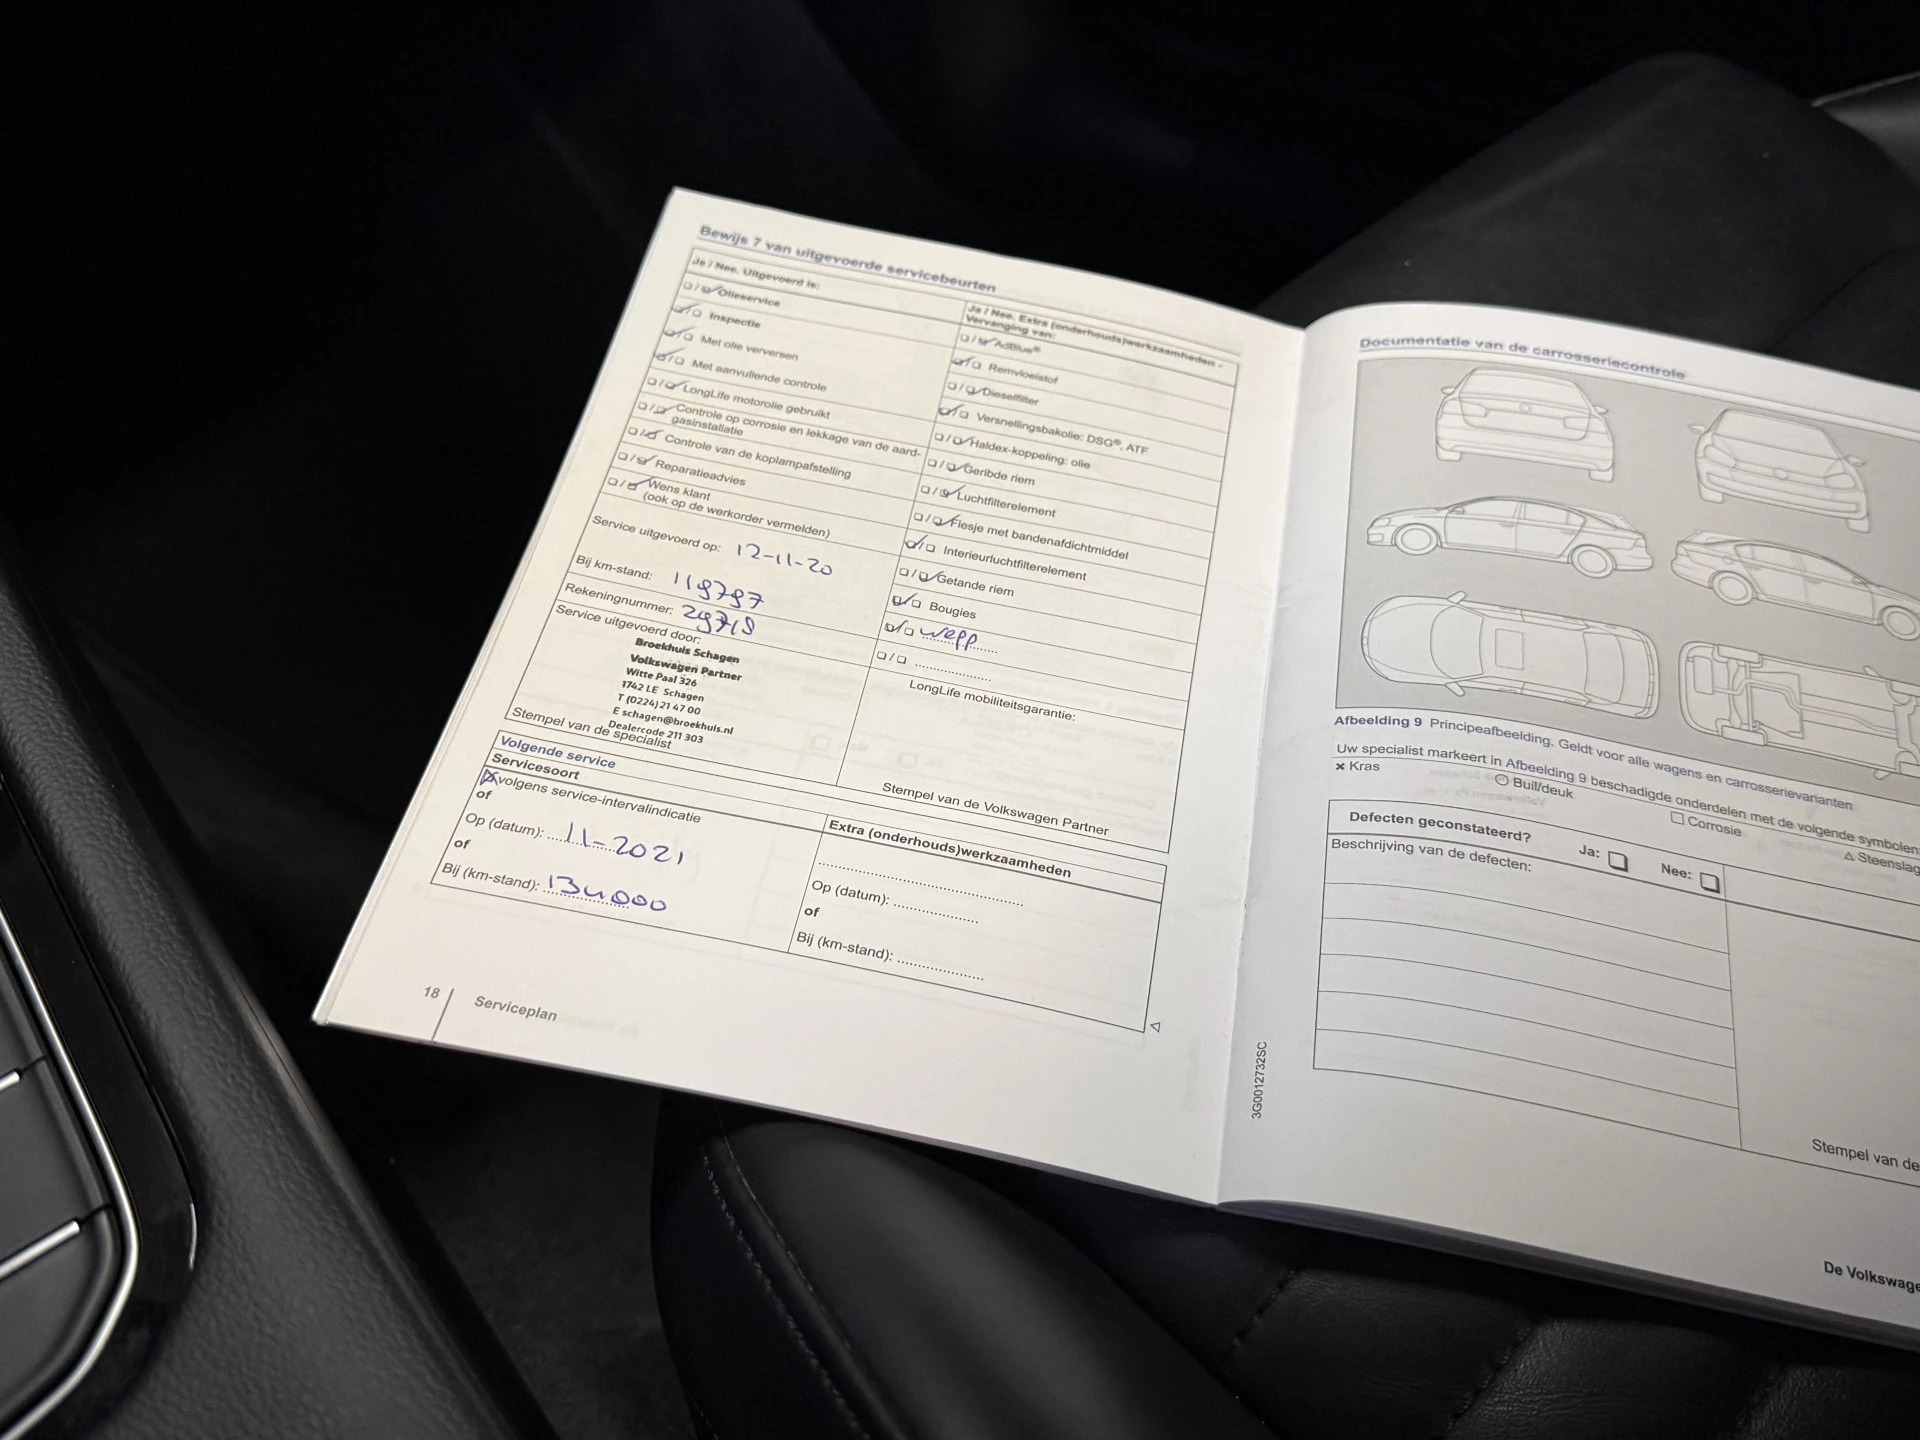 Bewijs 7 van uitgevoerde servicebeurten
Ja / Nee. Uitgevoerd is:
Olieservice
Inspectie
Met olie verversen
Met aanvullende controle
LongLife motorolie gebruikt
Controle op corrosie en lekkage van de aard-
gasinstallatie
Controle van de koplampafstelling
Reparatieadvies
Wens klant
(ook op de werkorder vermelden)
Service uitgevoerd op: 12-11-20
Bij km-stand: 119797
Rekeningnummer: 29719
Service uitgevoerd door:
Broekhuis Schagen
Volkswagen Partner
Witte Paal 326
1742 LE Schagen
T (0224) 21 47 00
E schagen@broekhuis.nl
Dealercode 211 303
Stempel van de specialist
Ja / Nee. Extra (onderhouds)werkzaamheden -
Vervanging van:
AdBlue®
Remvloeistof
Dieselfilter
Versnellingsbakolie: DSG®, ATF
Haldex-koppeling: olie
Geribde riem
Luchtfilterelement
Flesje met bandenafdichtmiddel
Interieurluchtfilterelement
Getande riem
Bougies
wepp
LongLife mobiliteitsgarantie:
Stempel van de Volkswagen Partner
Volgende service
Servicesoort
volgens service-intervalindicatie
of
Op (datum): 11-2021
of
Bij (km-stand): 134000
Extra (onderhouds)werkzaamheden
Op (datum):
of
Bij (km-stand):
18 Serviceplan
Documentatie van de carrosseriecontrole
Afbeelding 9 Principeafbeelding. Geldt voor alle wagens en carrosserievarianten
Uw specialist markeert in Afbeelding 9 beschadigde onderdelen met de volgende symbolen:
Kras
Buil/deuk
Corrosie
Steenslag
Defecten geconstateerd?
Ja:
Nee:
Beschrijving van de defecten:
Stempel van de
3G0012732SC
De Volkswage